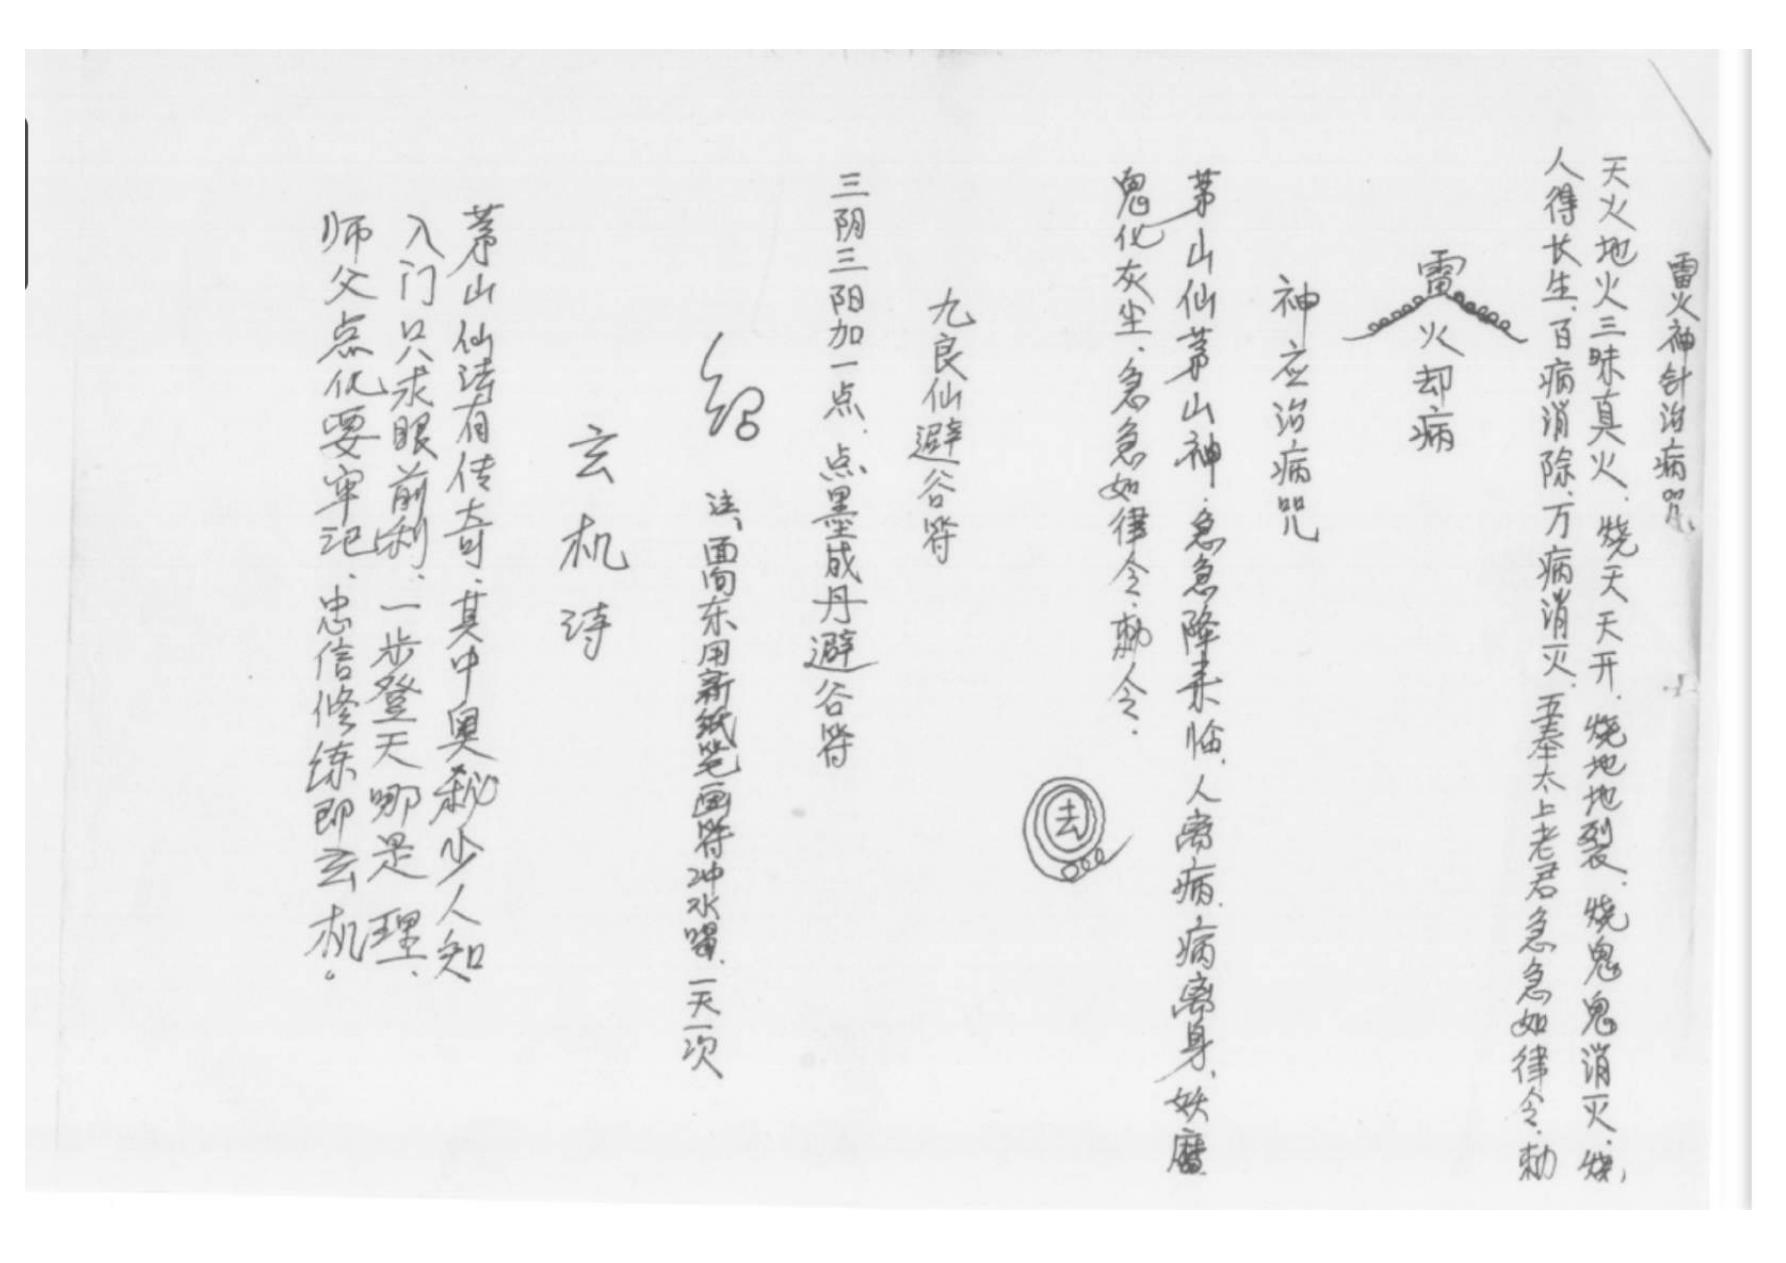 雷火神针治病咒、
天火地火三昧真火、烧天天开、烧地地裂、烧鬼鬼消灭、烧
人得长生、百病消除、万病消灭、吾奉太上老君急急如律令、勅
雷火却病
神应治病咒
茅山仙茅山神、急急降来临、人离病、病离身、妖魔
鬼化灰尘、急急如律令、勅令、
去
九良仙避谷符
三阴三阳加一点、点墨成丹避谷符
注、面向东用新纸笔画符冲水喝、一天一次
玄机诗
茅山仙法有传奇、其中奥秘少人知
入门只求眼前利、一步登天哪是理、
师父点化要牢记、忠信修练即玄机。